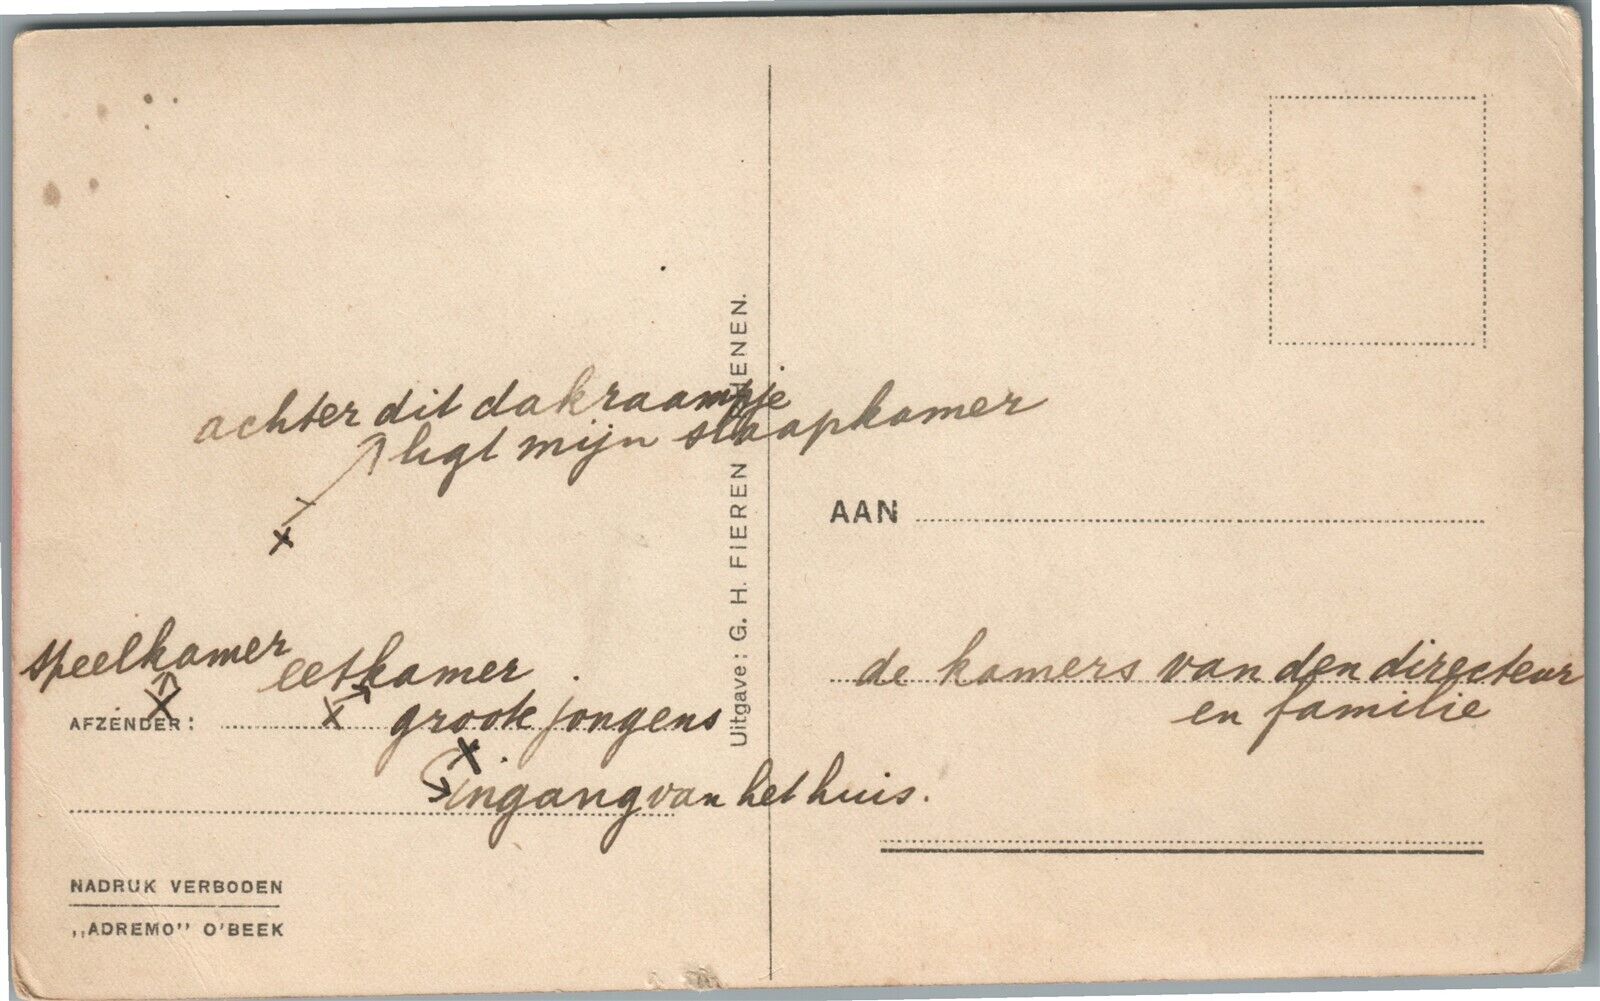 achter dit dakraampje
ligt mijn slaapkamer
speelkamer
eetkamer
groote jongens
ingang van het huis.
de kamers van den directeur
en familie
AAN
AFZENDER:
Uitgave: G. H. FIEREN HENEN.
NADRUK VERBODEN
,,ADREMO'' O'BEEK